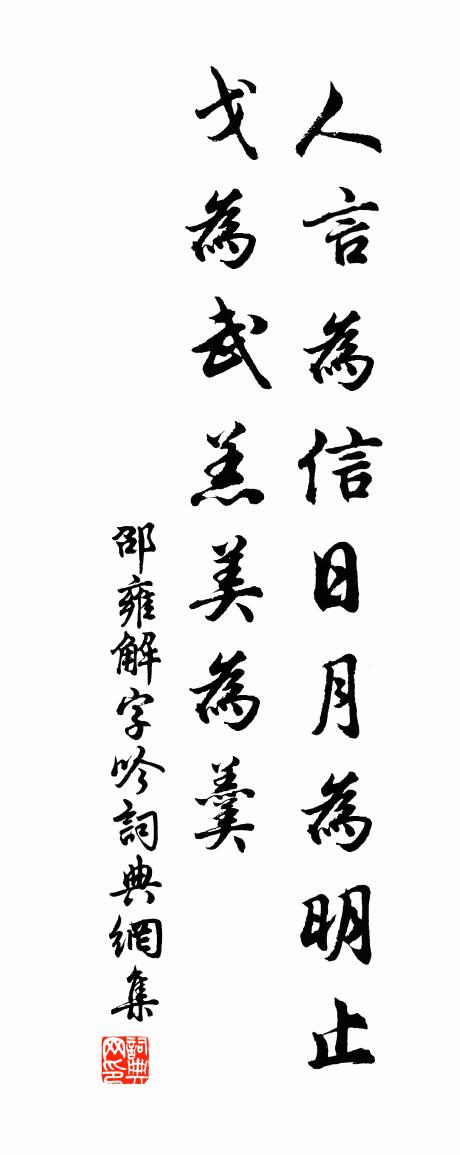 人言為信日月為明止
戈為武羔美為羹
邵雍解字吟詞典網集
詞典网印